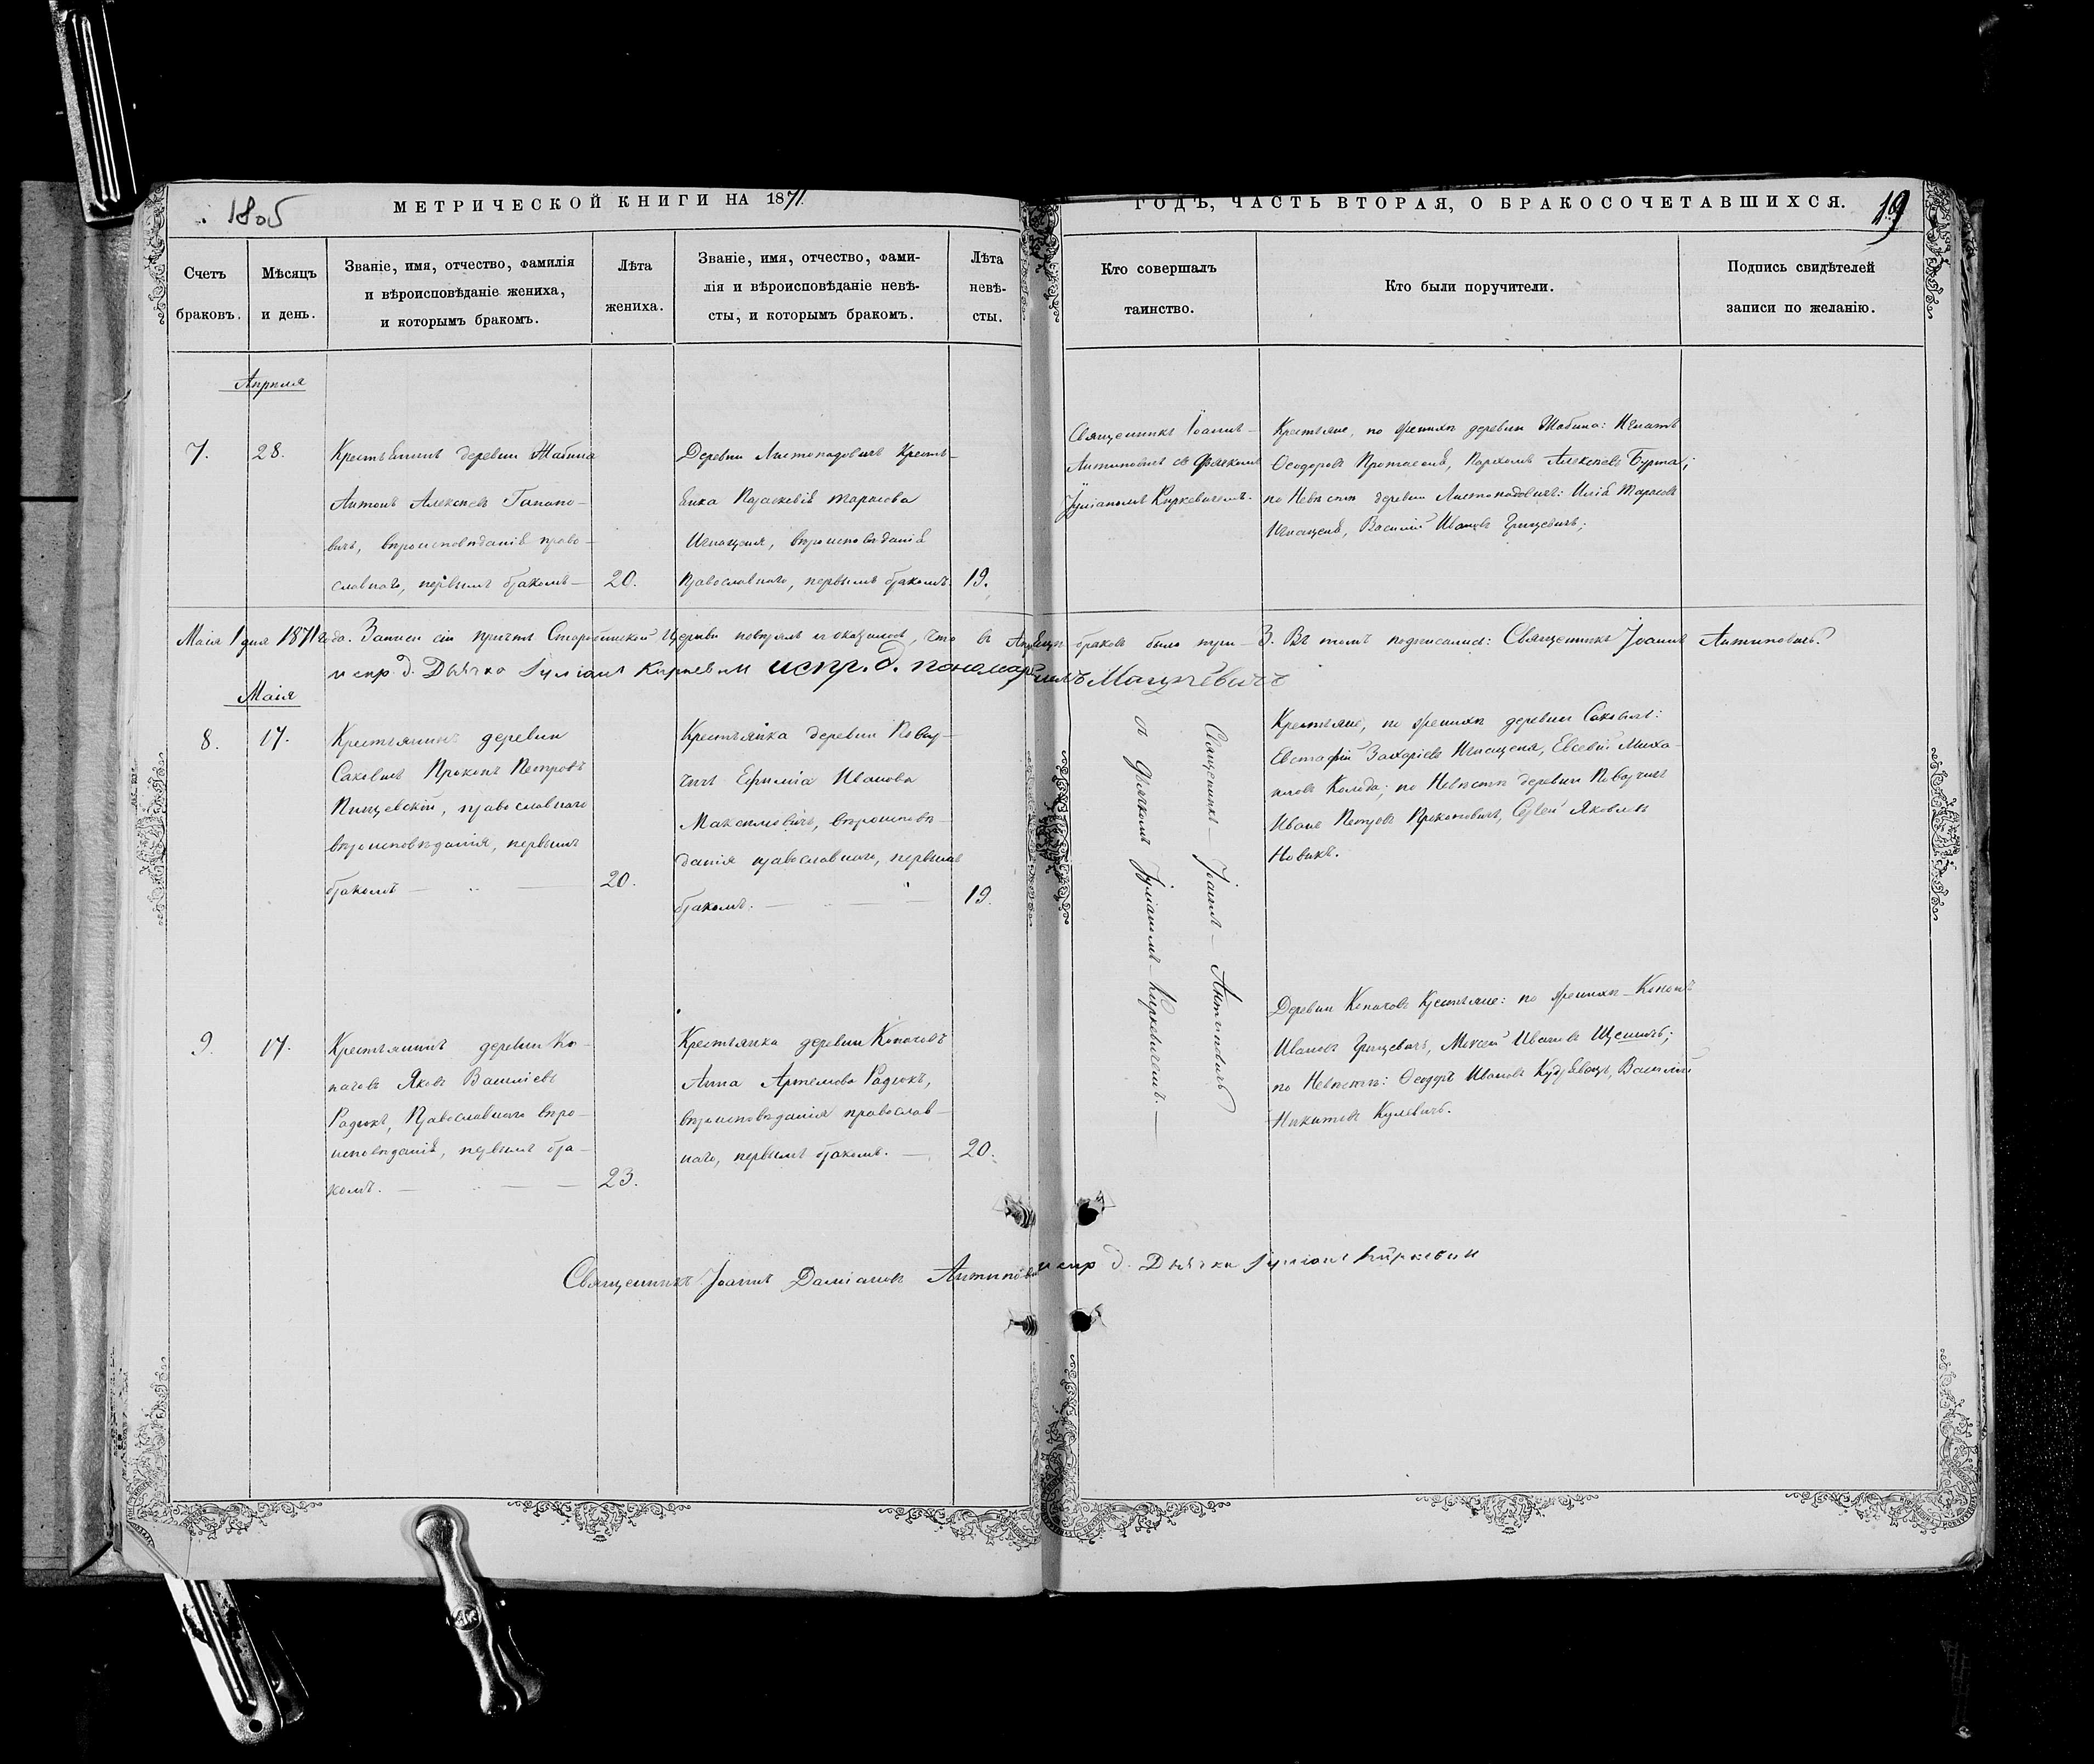 1805
МЕТРИЧЕСКОЙ КНИГИ НА 1871
ГОДЪ, ЧАСТЬ ВТОРАЯ, О БРАКОСОЧЕТАВШИХСЯ.
19
Счетъ
браковъ.
Мѣсяцъ
и день.
Званіе, имя, отчество, фамилія
и вѣроисповѣданіе жениха,
и которымъ бракомъ.
Лѣта
жениха.
Званіе, имя, отчество, фами-
лія и вѣроисповѣданіе невѣ-
сты, и которымъ бракомъ.
Лѣта
невѣ-
сты.
Кто совершалъ
таинство.
Кто были поручители.
Подпись свидѣтелей
записи по желанію.
Апрѣля
7.
28.
Крестьянинъ деревни Жабина
Антонъ Алексѣевъ Гапано-
вичъ, вѣроисповѣданія право-
славнаго, первымъ бракомъ
20.
Деревни Листопадовичъ Кресть-
янка Параскевія Тарасова
Игнащеня, вѣроисповѣданія
Православнаго, первымъ бракомъ.
19.
Священникъ Іоаннъ
Антиповичъ съ Дьячкомъ
Іуліаномъ Киркевичемъ.
Крестьяне, по женихѣ деревни Жабина: Игнатъ
Ѳеодоровъ Протасеня, Пархомъ Алексѣевъ Бурта;
по Невѣстѣ деревни Листопадовичъ: Илія Тарасовъ
Игнащеня, Василій Ивановъ Грицевичъ;
Маія 1 дня 1871 года. Записи сіи причтъ Старобинской Церкви повѣрялъ и оказалось, что въ Апрѣлѣ браковъ было три 3. Въ томъ подписались: Священникъ Іоаннъ Антиповичъ
испр. д. Дьячка Іуліанъ Киркевич испр. д. пономаря Мацкевичъ
Маія
8.
17.
Крестьянинъ деревни
Саковичъ Прокопъ Петровъ
Пищевскій, православнаго
вѣроисповѣданія, первымъ
бракомъ
20.
Крестьянка деревни Повар-
чичъ Ефимія Иванова
Максимовичъ, вѣроисповѣ-
данія православнаго, первымъ
бракомъ.
19.
Священникъ Іоаннъ Антиповичъ
съ Дьячкомъ Іуліаномъ Киркевичемъ.
Крестьяне, по женихѣ деревни Саковичъ:
Евстафій Захаріевъ Игнащеня, Евсевій Миха-
иловъ Колода; по Невѣстѣ деревни Поварчичъ
Иванъ Петровъ Прокоповичъ, Сергей Яковлевъ
Новикъ.
9.
17.
Крестьянинъ деревни Ко-
пачовъ Яковъ Василіевъ
Радюкъ, Православнаго вѣро-
исповѣданія, первымъ бра-
комъ.
23.
Крестьянка деревни Копачовъ
Анна Артемова Радюкъ,
вѣроисповѣданія православ-
наго, первымъ бракомъ.
20.
Деревни Копачовъ Крестьяне: по женихѣ Кононъ
Ивановъ Грицевичъ, Моисей Ивановъ
по Невѣстѣ: Ѳеодоръ Ивановъ Кудрявецъ, Василій
Никитевъ Кулевичъ.
Священникъ Іоаннъ Даміановъ Антиповичъ
испр. д. Дьячка Іуліанъ Киркевич